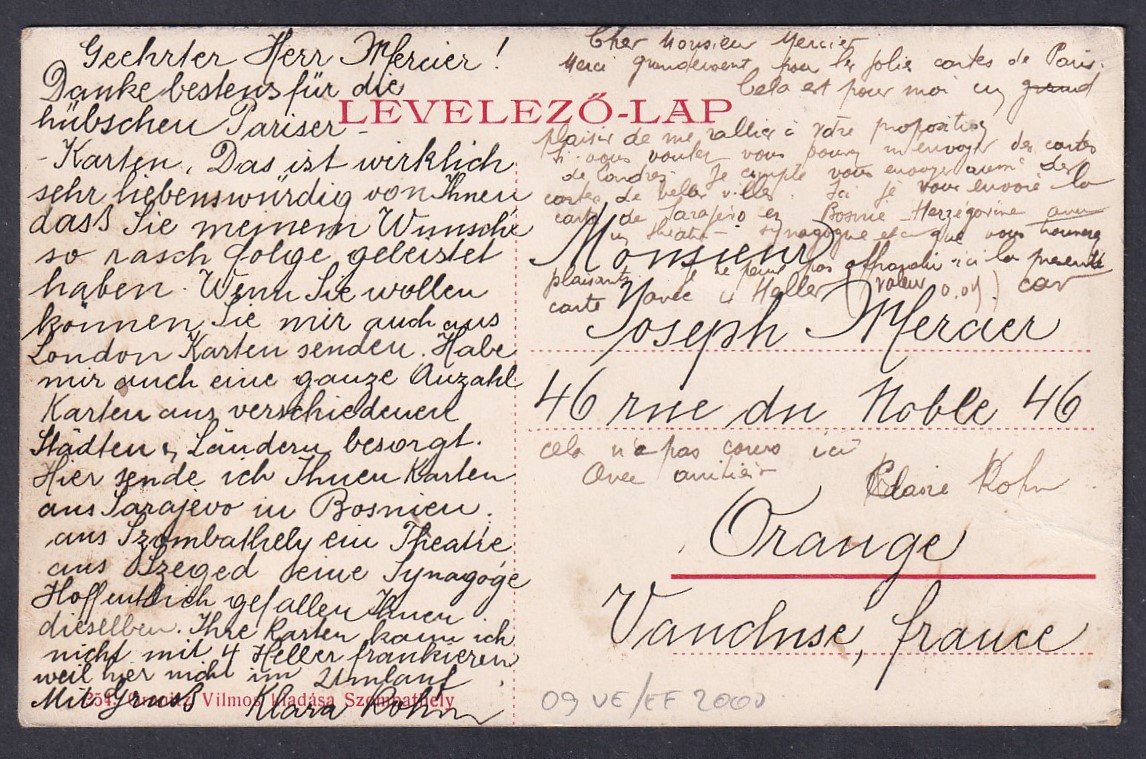 Geehrter Herr Mercier!
Danke bestens für die
hübschen Pariser-
-Karten. Das ist wirklich
sehr liebenswürdig von Ihnen
dass Sie meinem Wunsche
so rasch folge geleistet
haben. Wenn Sie wollen
können Sie mir auch aus
London Karten senden. Habe
mir auch eine ganze Anzahl
Karten aus verschiedenen
Städten & Ländern besorgt.
Hier sende ich Ihnen Karten
aus Sarajevo in Bosnien.
aus Szombathely ein Theater
aus Szeged eine Synagoge
Hoffentlich gefallen Ihnen
dieselben. Ihre Karten kann ich
nicht mit 4 Heller frankieren
weil hier nicht im Umlauf
Mit Gruss Klara Kohn
Vilmos kiadása Szombathely
LEVELEZŐ-LAP
Cher Monsieur Mercier
Merci grandement pour les jolie cartes de Paris.
Cela est pour moi un grand
plaisir de me rallier à votre proposition
Si vous voulez vous pouvez m'envoyer des cartes
de Londres. Je compte vous envoyer aussi des
cartes de belles villes. Ici je vous envoie la
carte de Sarajevo en Bosnie-Herzégovine avec
un théatre synagogue que vous trouverez
plaisante Je ne peux pas affranchir ici la présente
carte avec 4 Haller (valeur 0,04) car
cela n'a pas cours ici
Avec amitiés Claire Kohn
Monsieur
Joseph Mercier
46 rue du Noble 46
Orange
Vaucluse, france
09 VE/EF 2000